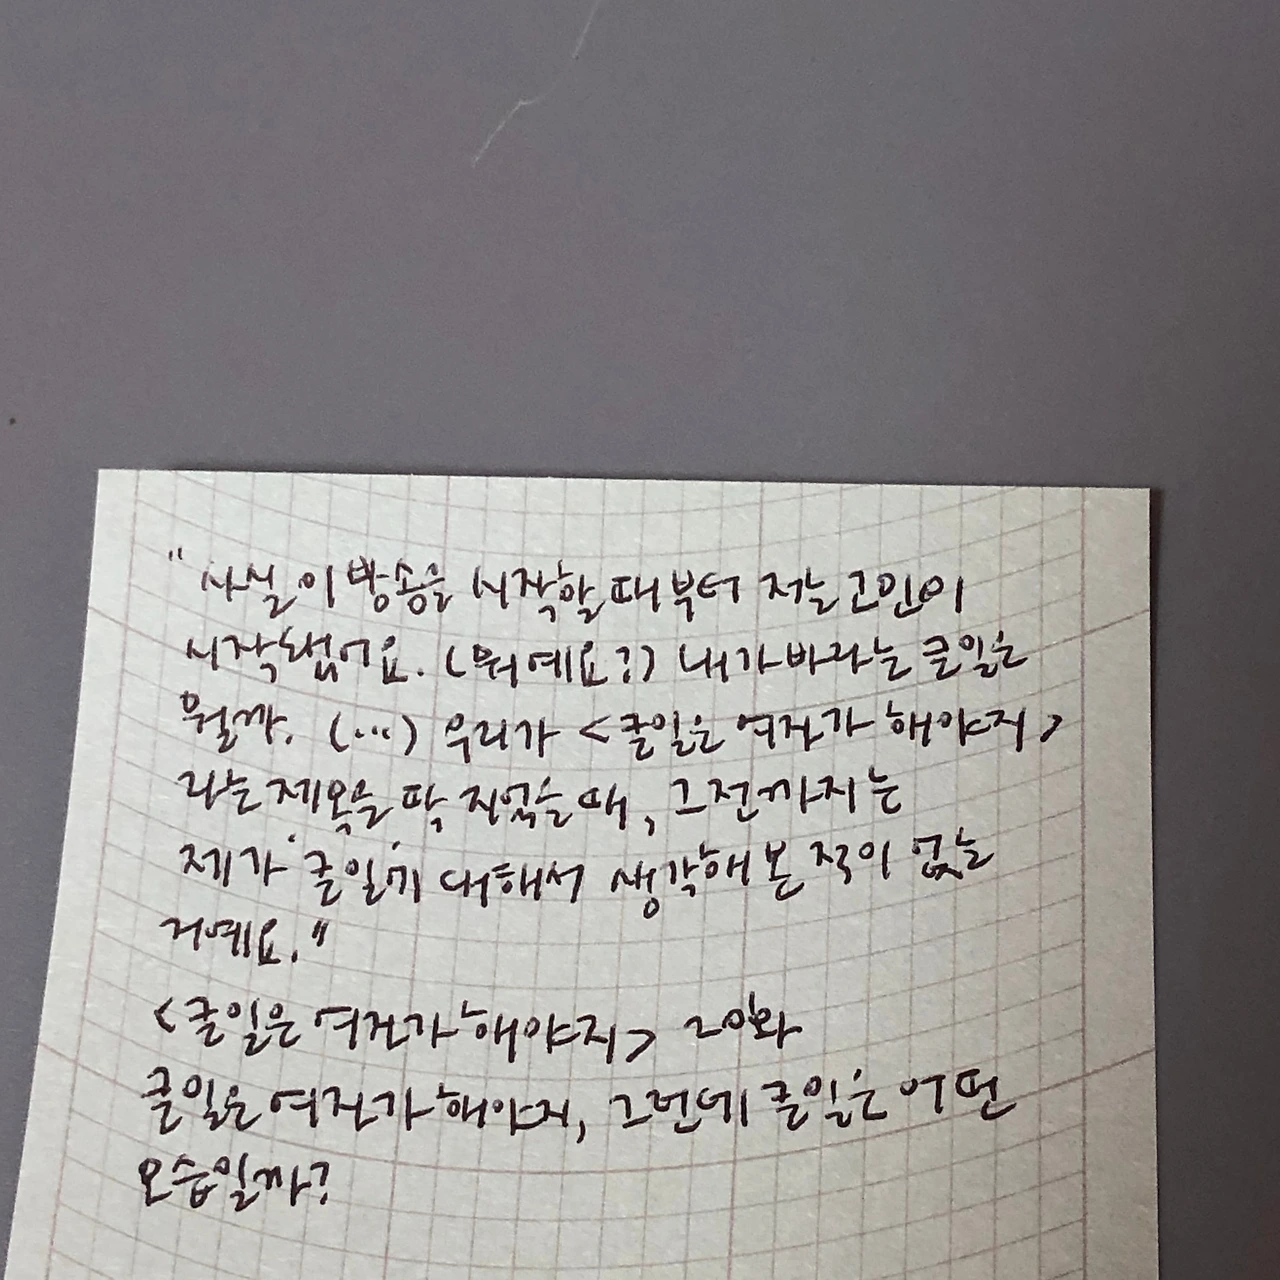 "사실 이 방송을 시작할 때부터 저는 고민이
시작됐어요. (뭐예요?) 내가 바라는 큰일은
뭘까. (...) 우리가 <큰일은 여자가 해야지>
라는 제목을 딱 지었을 때, 그전까지는
제가 '큰일'에 대해서 생각해 본 적이 없는
거예요."
<큰일은 여자가 해야지> 20화
큰일은 여자가 해야지, 그런데 큰일은 어떤
모습일까?